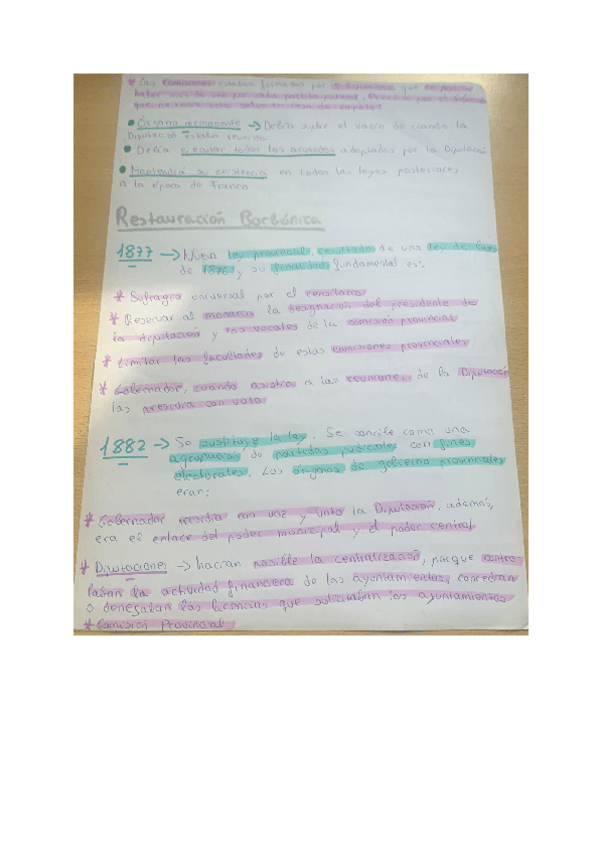 * Las Comisiones estaban formadas por 5 diputados que no podían
haber más de uno por cada partido judicial. Presidido por el Gobernador
que no tenía voto salvo en caso de empate.
• Órgano permanente → Debía suplir el vacío de cuando la
Diputació estaba reunida
• Debía ejecutar todos los acuerdos adoptados por la Diputació
• Mantendrá su existencia en todas las leyes posteriores
a la época de Franco
Restauración Borbónica
1877 → Nueva ley provincial, resultado de una ley de bases
de 1876 y su finalidad fundamental es:
* Sufragio universal por el censitario
* Reservar al monarca la designación del presidente de
la diputación y los vocales de la comisión provincial
* Limitar las facultades de estas comisiones provinciales
* Gobernador, cuando asistía a las reuniones de la Diputació
las presidía con voto
1882 → Se sustituye la ley. Se concibe como una
agrupación de partidos judiciales con fines
electorales. Los órganos de gobierno provinciales
eran:
* Gobernador presidia con voz y voto la Diputación, además,
era el enlace del poder municipal y el poder central
* Diputaciones → hacían posible la centralización, porque contro
laban la actividad financiera de los ayuntamientos, concedían
o denegaban las licencias que solicitaban los ayuntamientos
* Comisión Provincial